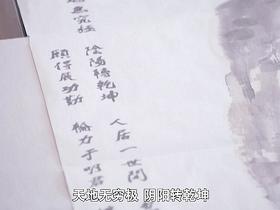 無窮極
陰陽轉乾坤
人居一世間
願得展功勤
輸力于明君
天地无穷极 阴阳转乾坤